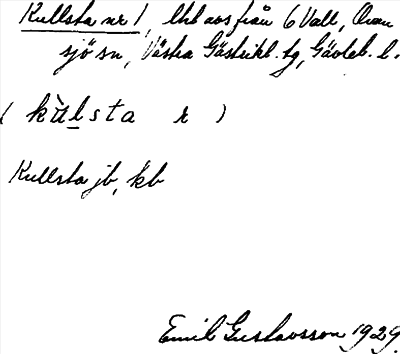 Kullsta nr 1, lht avs från 6 Vall, Ovan
sjö sn, Västra Gästrikl. tg, Gävleb. l.
(kùlsta r)
Kullsta jb, kb
Emil Gustavsson 1929.